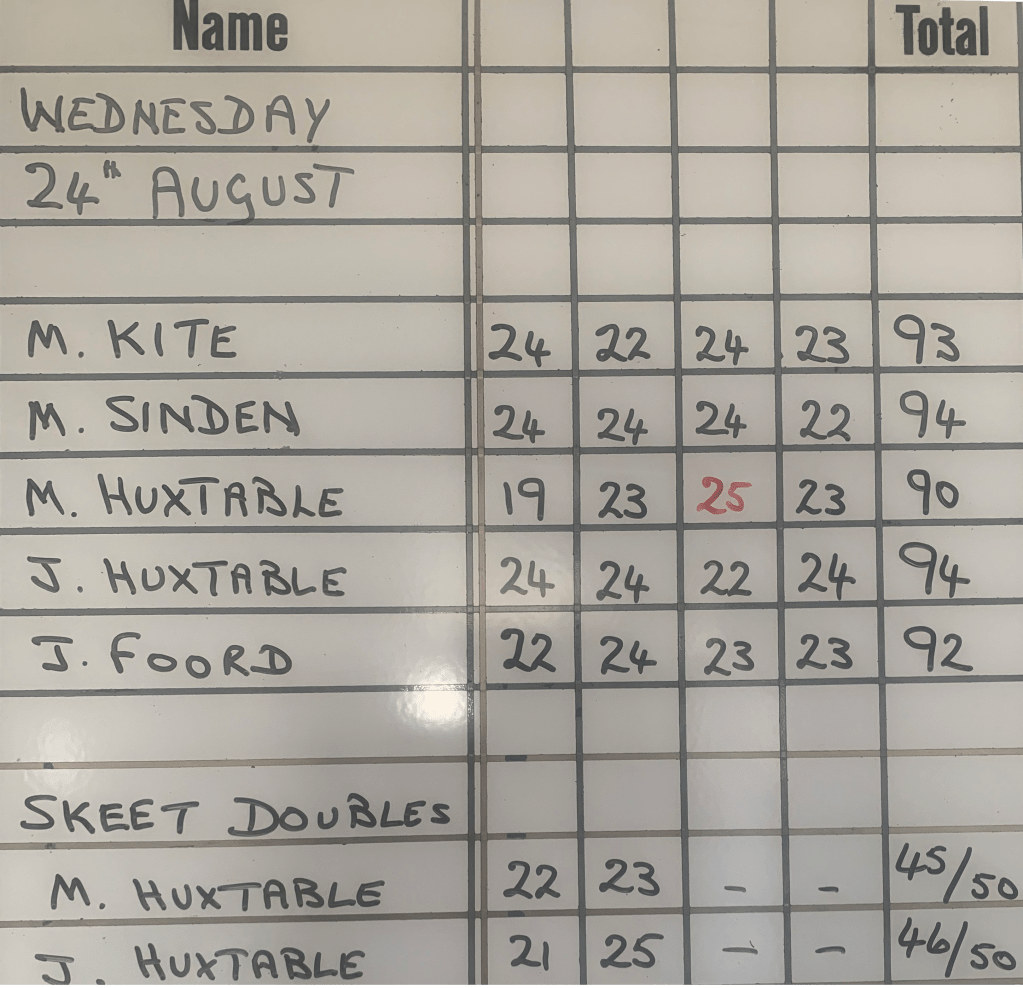 Name Total
WEDNESDAY
24th AUGUST
M. KITE 24 22 24 23 93
M. SINDEN 24 24 24 22 94
M. HUXTABLE 19 23 25 23 90
J. HUXTABLE 24 24 22 24 94
J. FOORD 22 24 23 23 92
SKEET DOUBLES
M. HUXTABLE 22 23 - - 45/50
J. HUXTABLE 21 25 - - 46/50